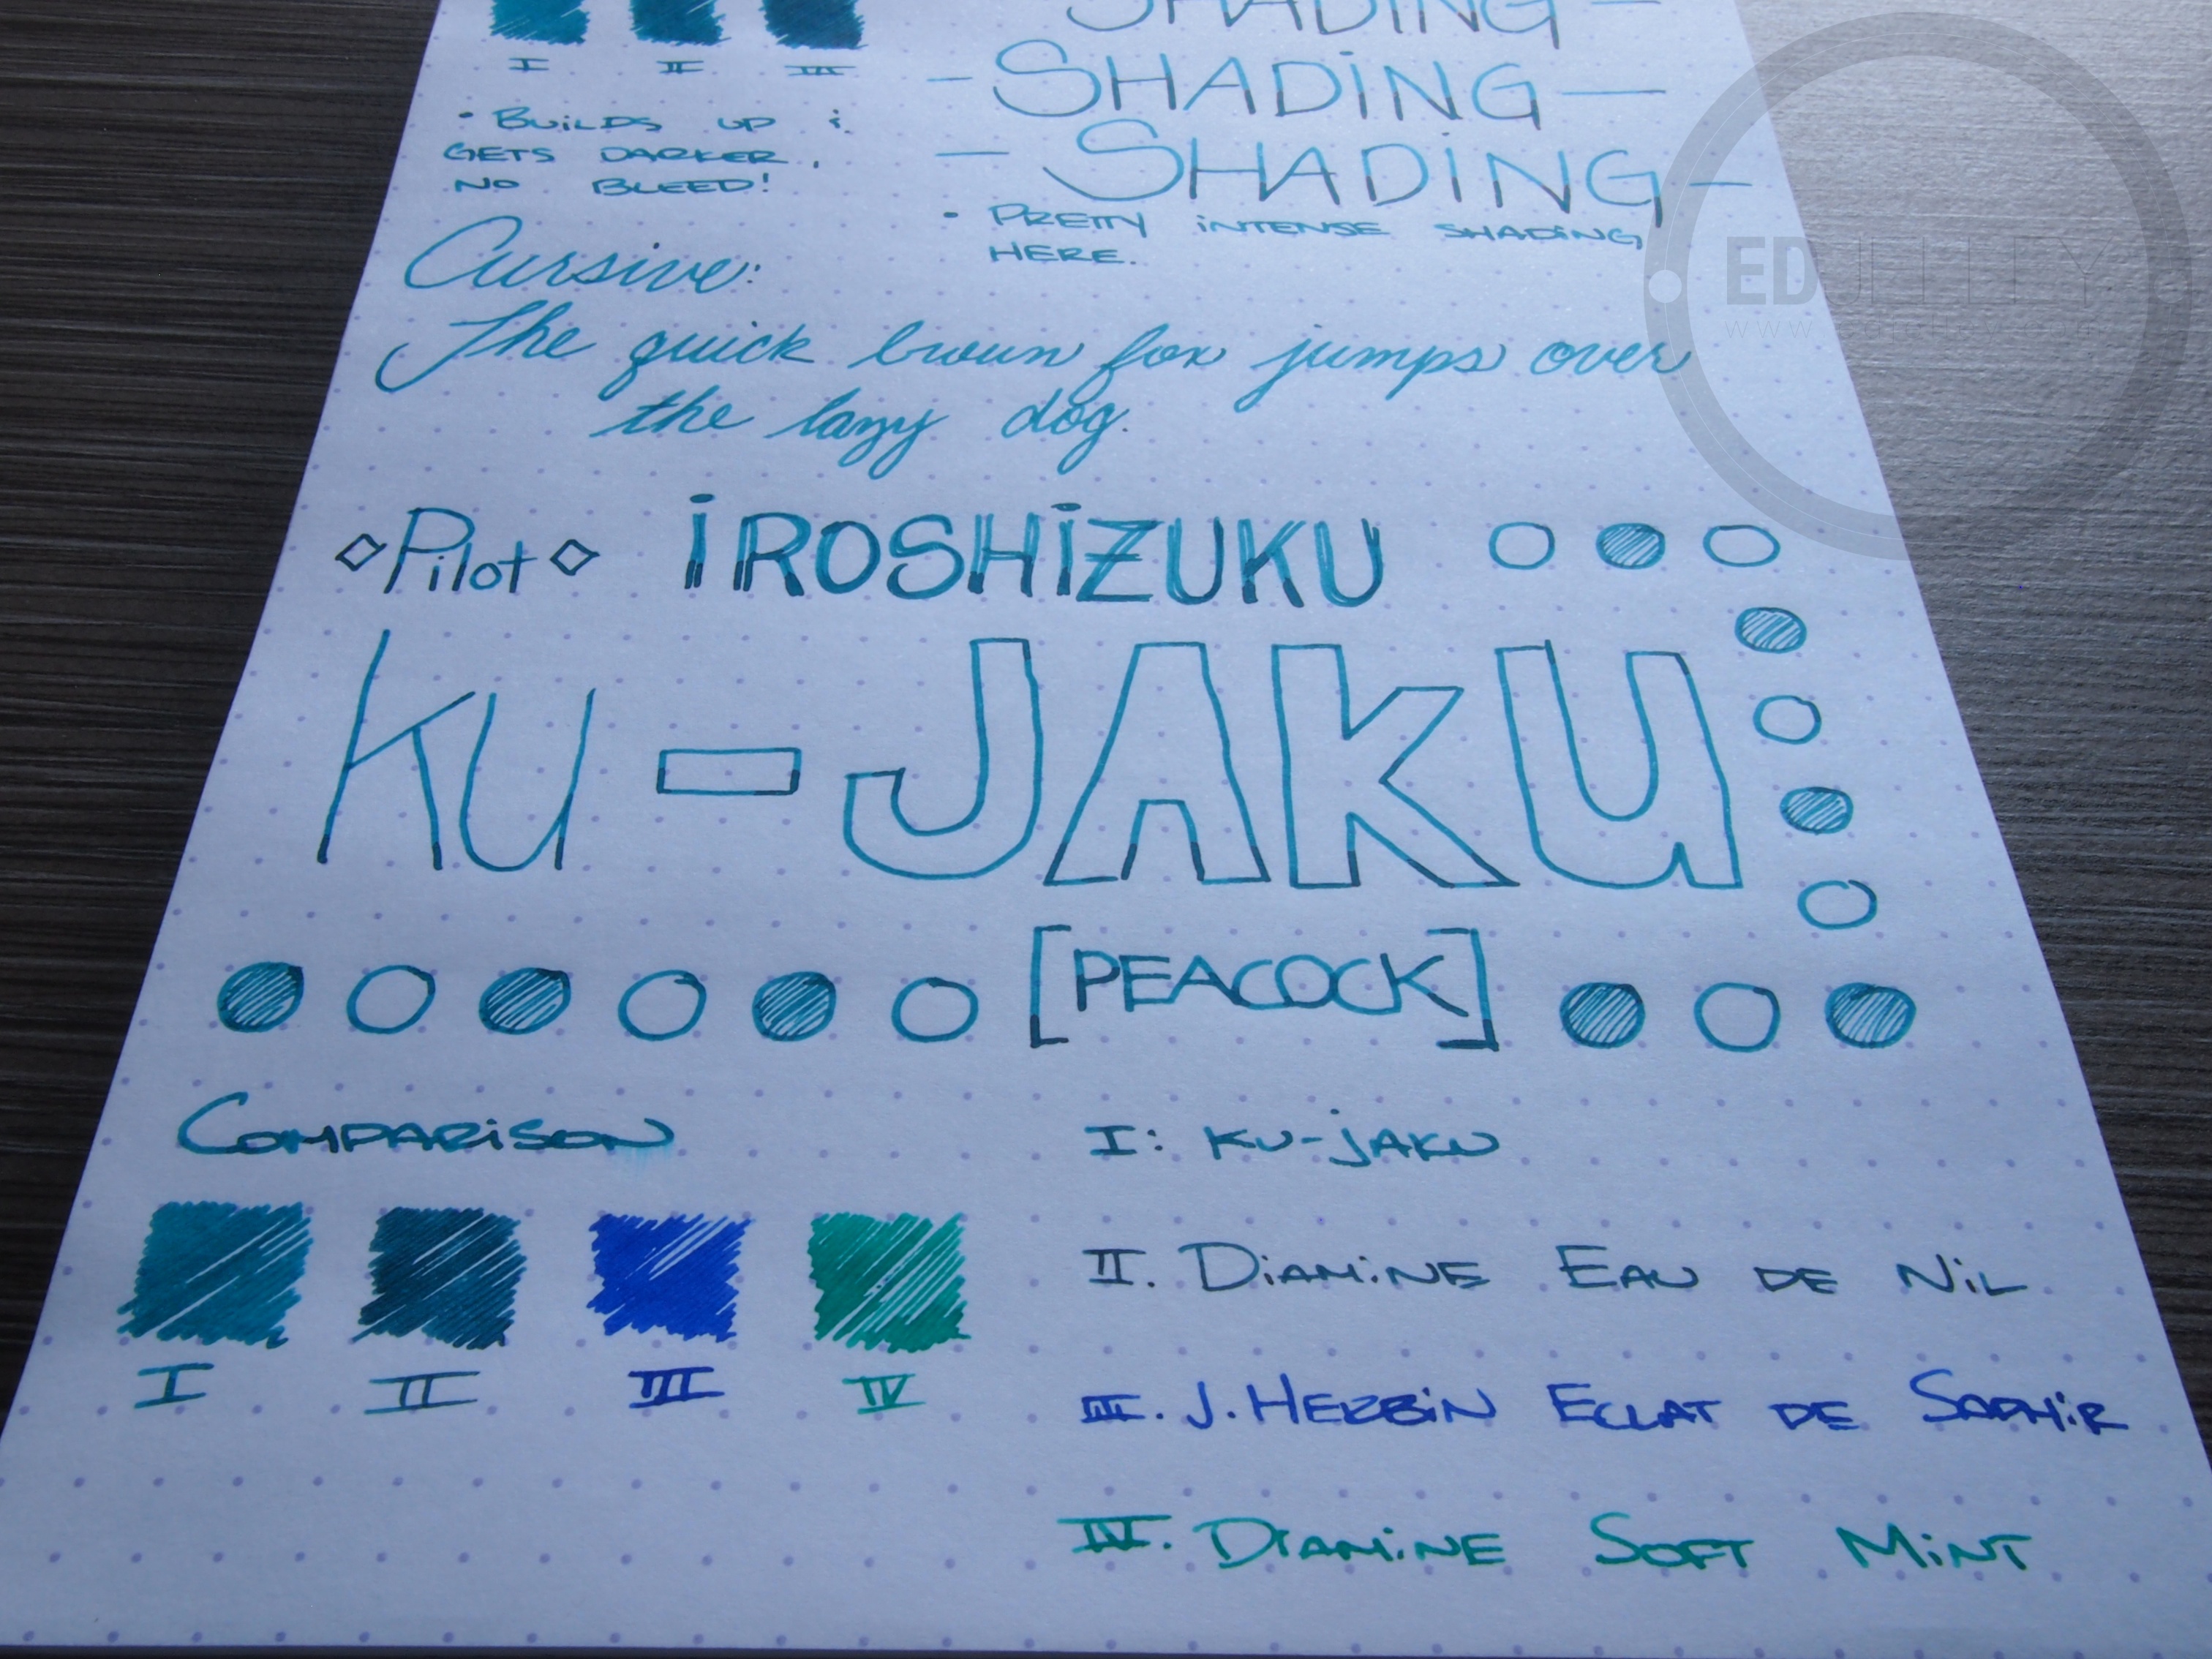 SHADING -
I II III
- SHADING -
- SHADING -
• BUILDS UP &
GETS DARKER,
NO BLEED!
• PRETTY INTENSE SHADING
HERE.
Cursive:
The quick brown fox jumps over
the lazy dog.
EDJELLEY
Pilot IROSHIZUKU
KU-JAKU
[PEACOCK]
COMPARISON
I II III IV
I: KU-JAKU
II. DIAMINE EAU DE NIL
III. J. HERBIN ECLAT DE SAPHIR
IV. DIAMINE SOFT MINT